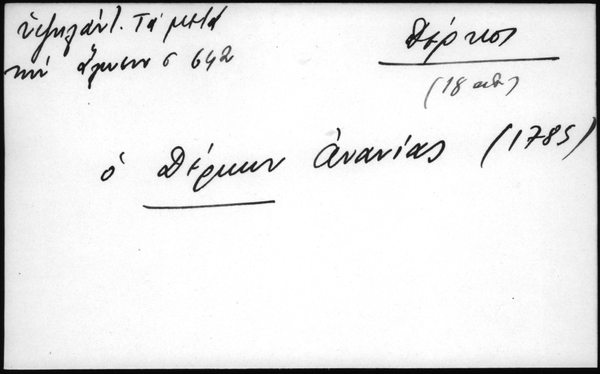 Ὑψηλάντ. Τά μετά
τήν ἅλωσιν σ 642
Δέρκος
(18 αἰ)
ὁ Δέρκων Ἀνανίας (1785)